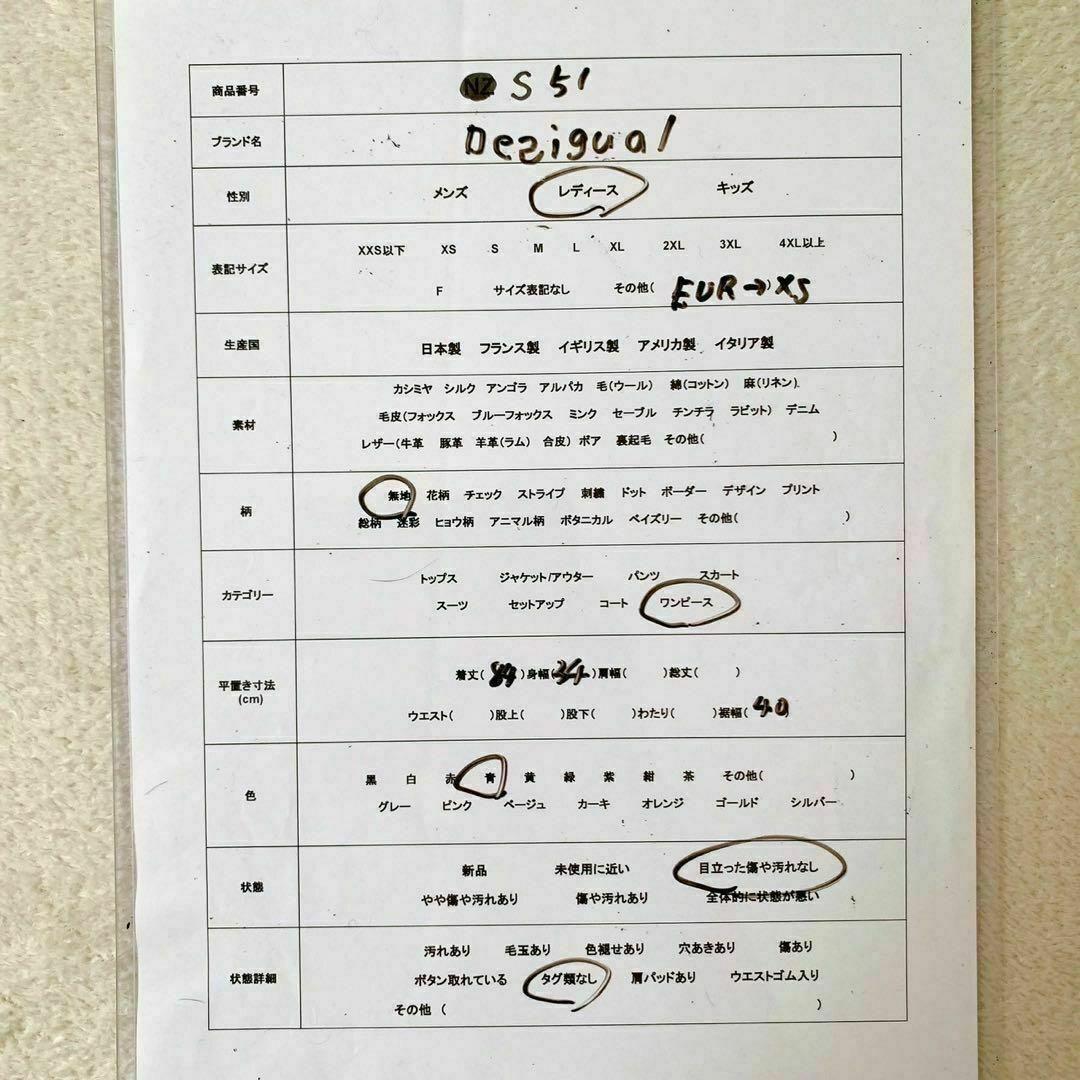 商品番号 NZ S 51
ブランド名 Dezigual
性別 メンズ レディース キッズ
XXS以下 XS S M L XL 2XL 3XL 4XL以上
表記サイズ
F サイズ表記なし その他( EUR→XS )
生産国 日本製 フランス製 イギリス製 アメリカ製 イタリア製
カシミヤ シルク アンゴラ アルパカ 毛(ウール) 綿(コットン) 麻(リネン)
毛皮(フォックス ブルーフォックス ミンク セーブル チンチラ ラビット) デニム
素材
レザー(牛革 豚革 羊革(ラム) 合皮) ボア 裏起毛 その他( )
無地 花柄 チェック ストライプ 刺繍 ドット ボーダー デザイン プリント
柄
総柄 迷彩 ヒョウ柄 アニマル柄 ボタニカル ペイズリー その他( )
トップス ジャケット/アウター パンツ スカート
カテゴリー
スーツ セットアップ コート ワンピース
着丈( 84 )身幅( 34 )肩幅( )総丈( )
平置き寸法
(cm)
ウエスト( )股上( )股下( )わたり( )裾幅( 40 )
黒 白 赤 青 黄 緑 紫 紺 茶 その他( )
色
グレー ピンク ベージュ カーキ オレンジ ゴールド シルバー
新品 未使用に近い 目立った傷や汚れなし
状態
やや傷や汚れあり 傷や汚れあり 全体的に状態が悪い
汚れあり 毛玉あり 色褪せあり 穴あきあり 傷あり
状態詳細 ボタン取れている タグ類なし 肩パッドあり ウエストゴム入り
その他 ( )